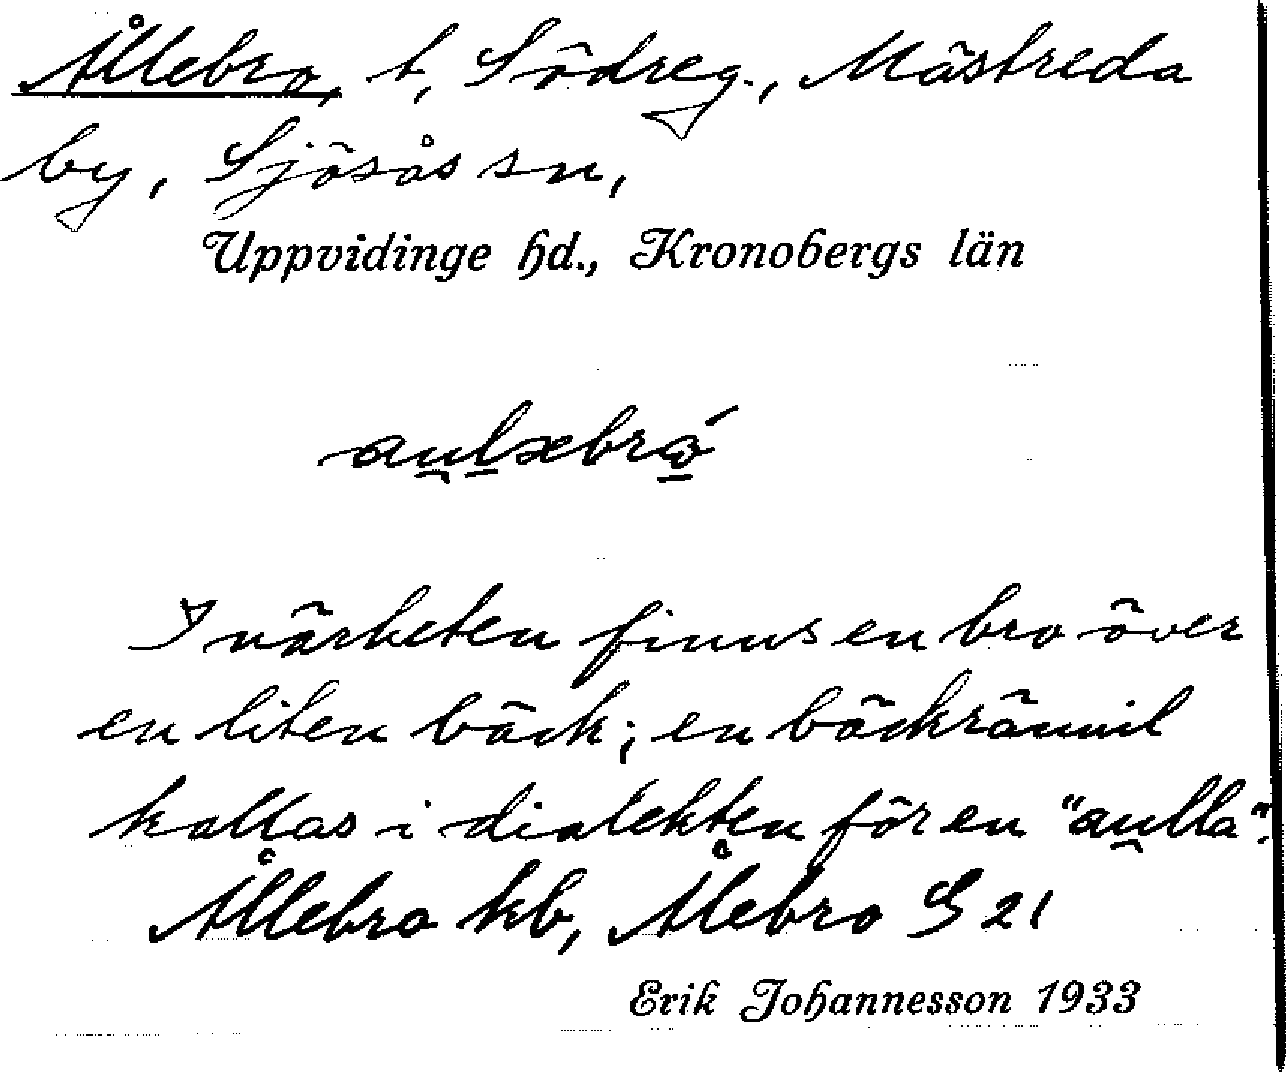 Ållebro, t, Södreg., Mästreda
by, Sjösås sn,
Uppvidinge hd., Kronobergs län
I närheten finns en bro över
en liten bäck; en bäckrännil
kallas i dialekten för en "au̯lla".
Ållebro kb, Ålebro G 21
Erik Johannesson 1933